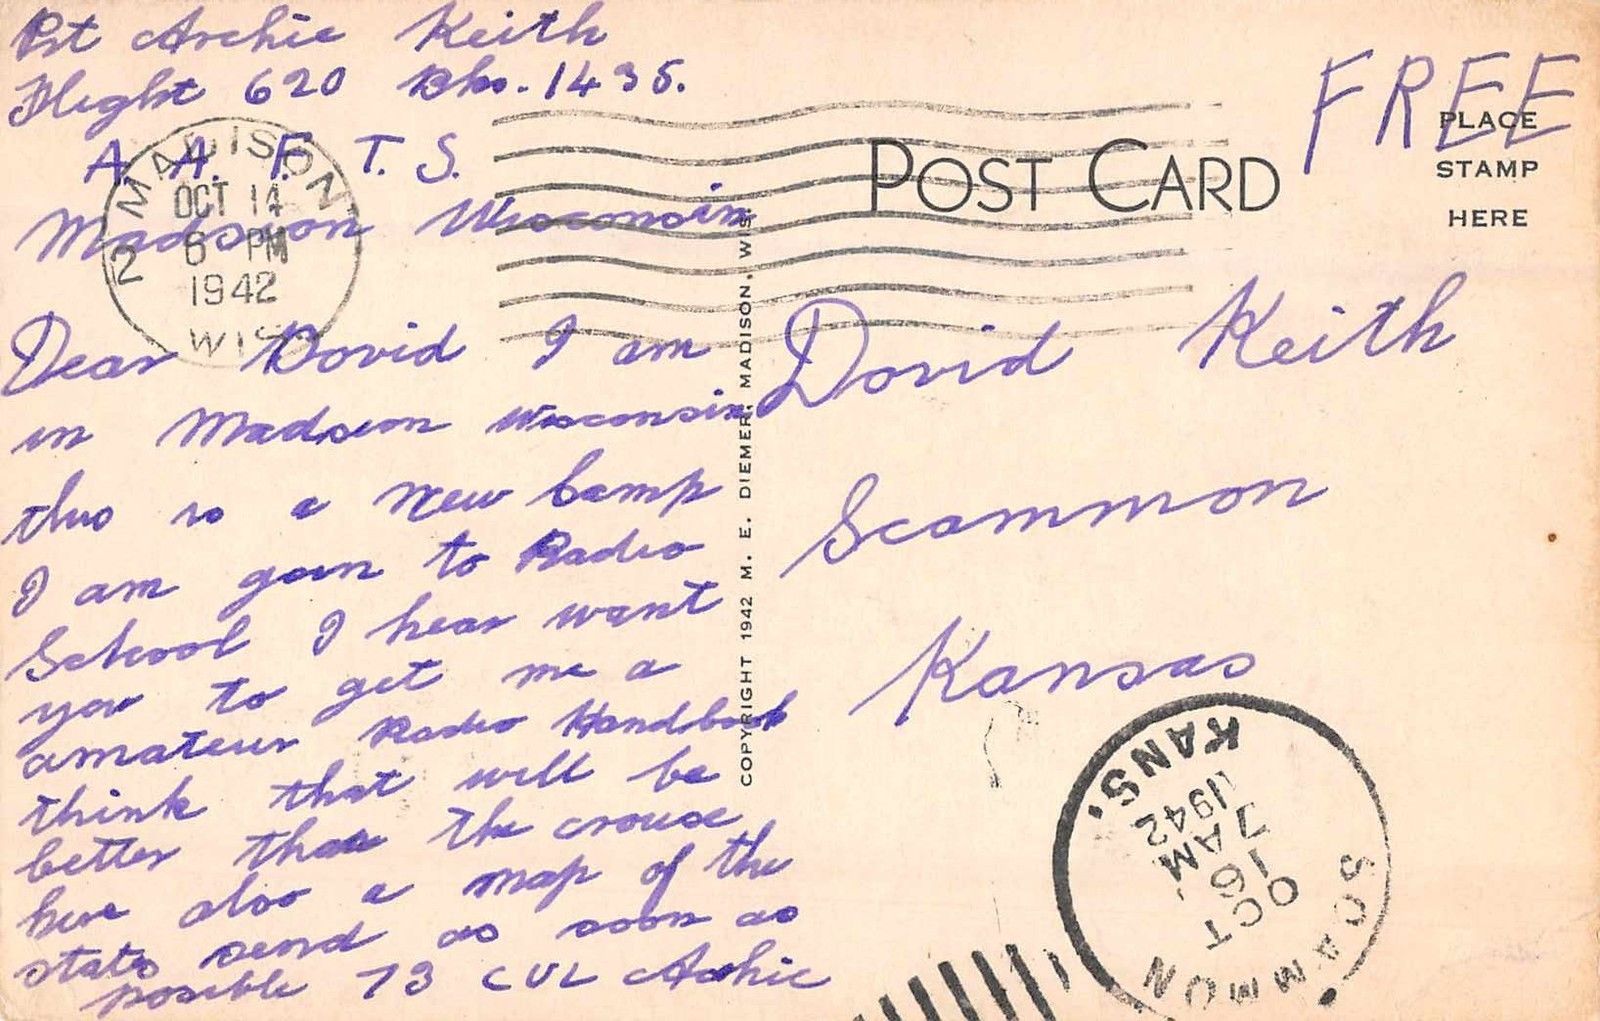 Pvt Archie Keith
Flight 620 Bks. 1435.
A. A. F. T. S.
Madison Wisconsin
Dear David I am
in Madison Wisconsin
this is a New Camp
I am goin to Radio
School I hear want
you to get me a
amateur Radio Handbook
think that will be
better than the crouse
here also a map of the
states send as soon as
possible 73 CUL Archie
MADISON,
2
OCT 14
6 PM
1942
WIS.
POST CARD
FREE
PLACE
STAMP
HERE
COPYRIGHT 1942 M. E. DIEMER, MADISON, WIS.
David Keith
Scammon
Kansas
SCAMMON
KANS.
OCT
16
7 AM
1942